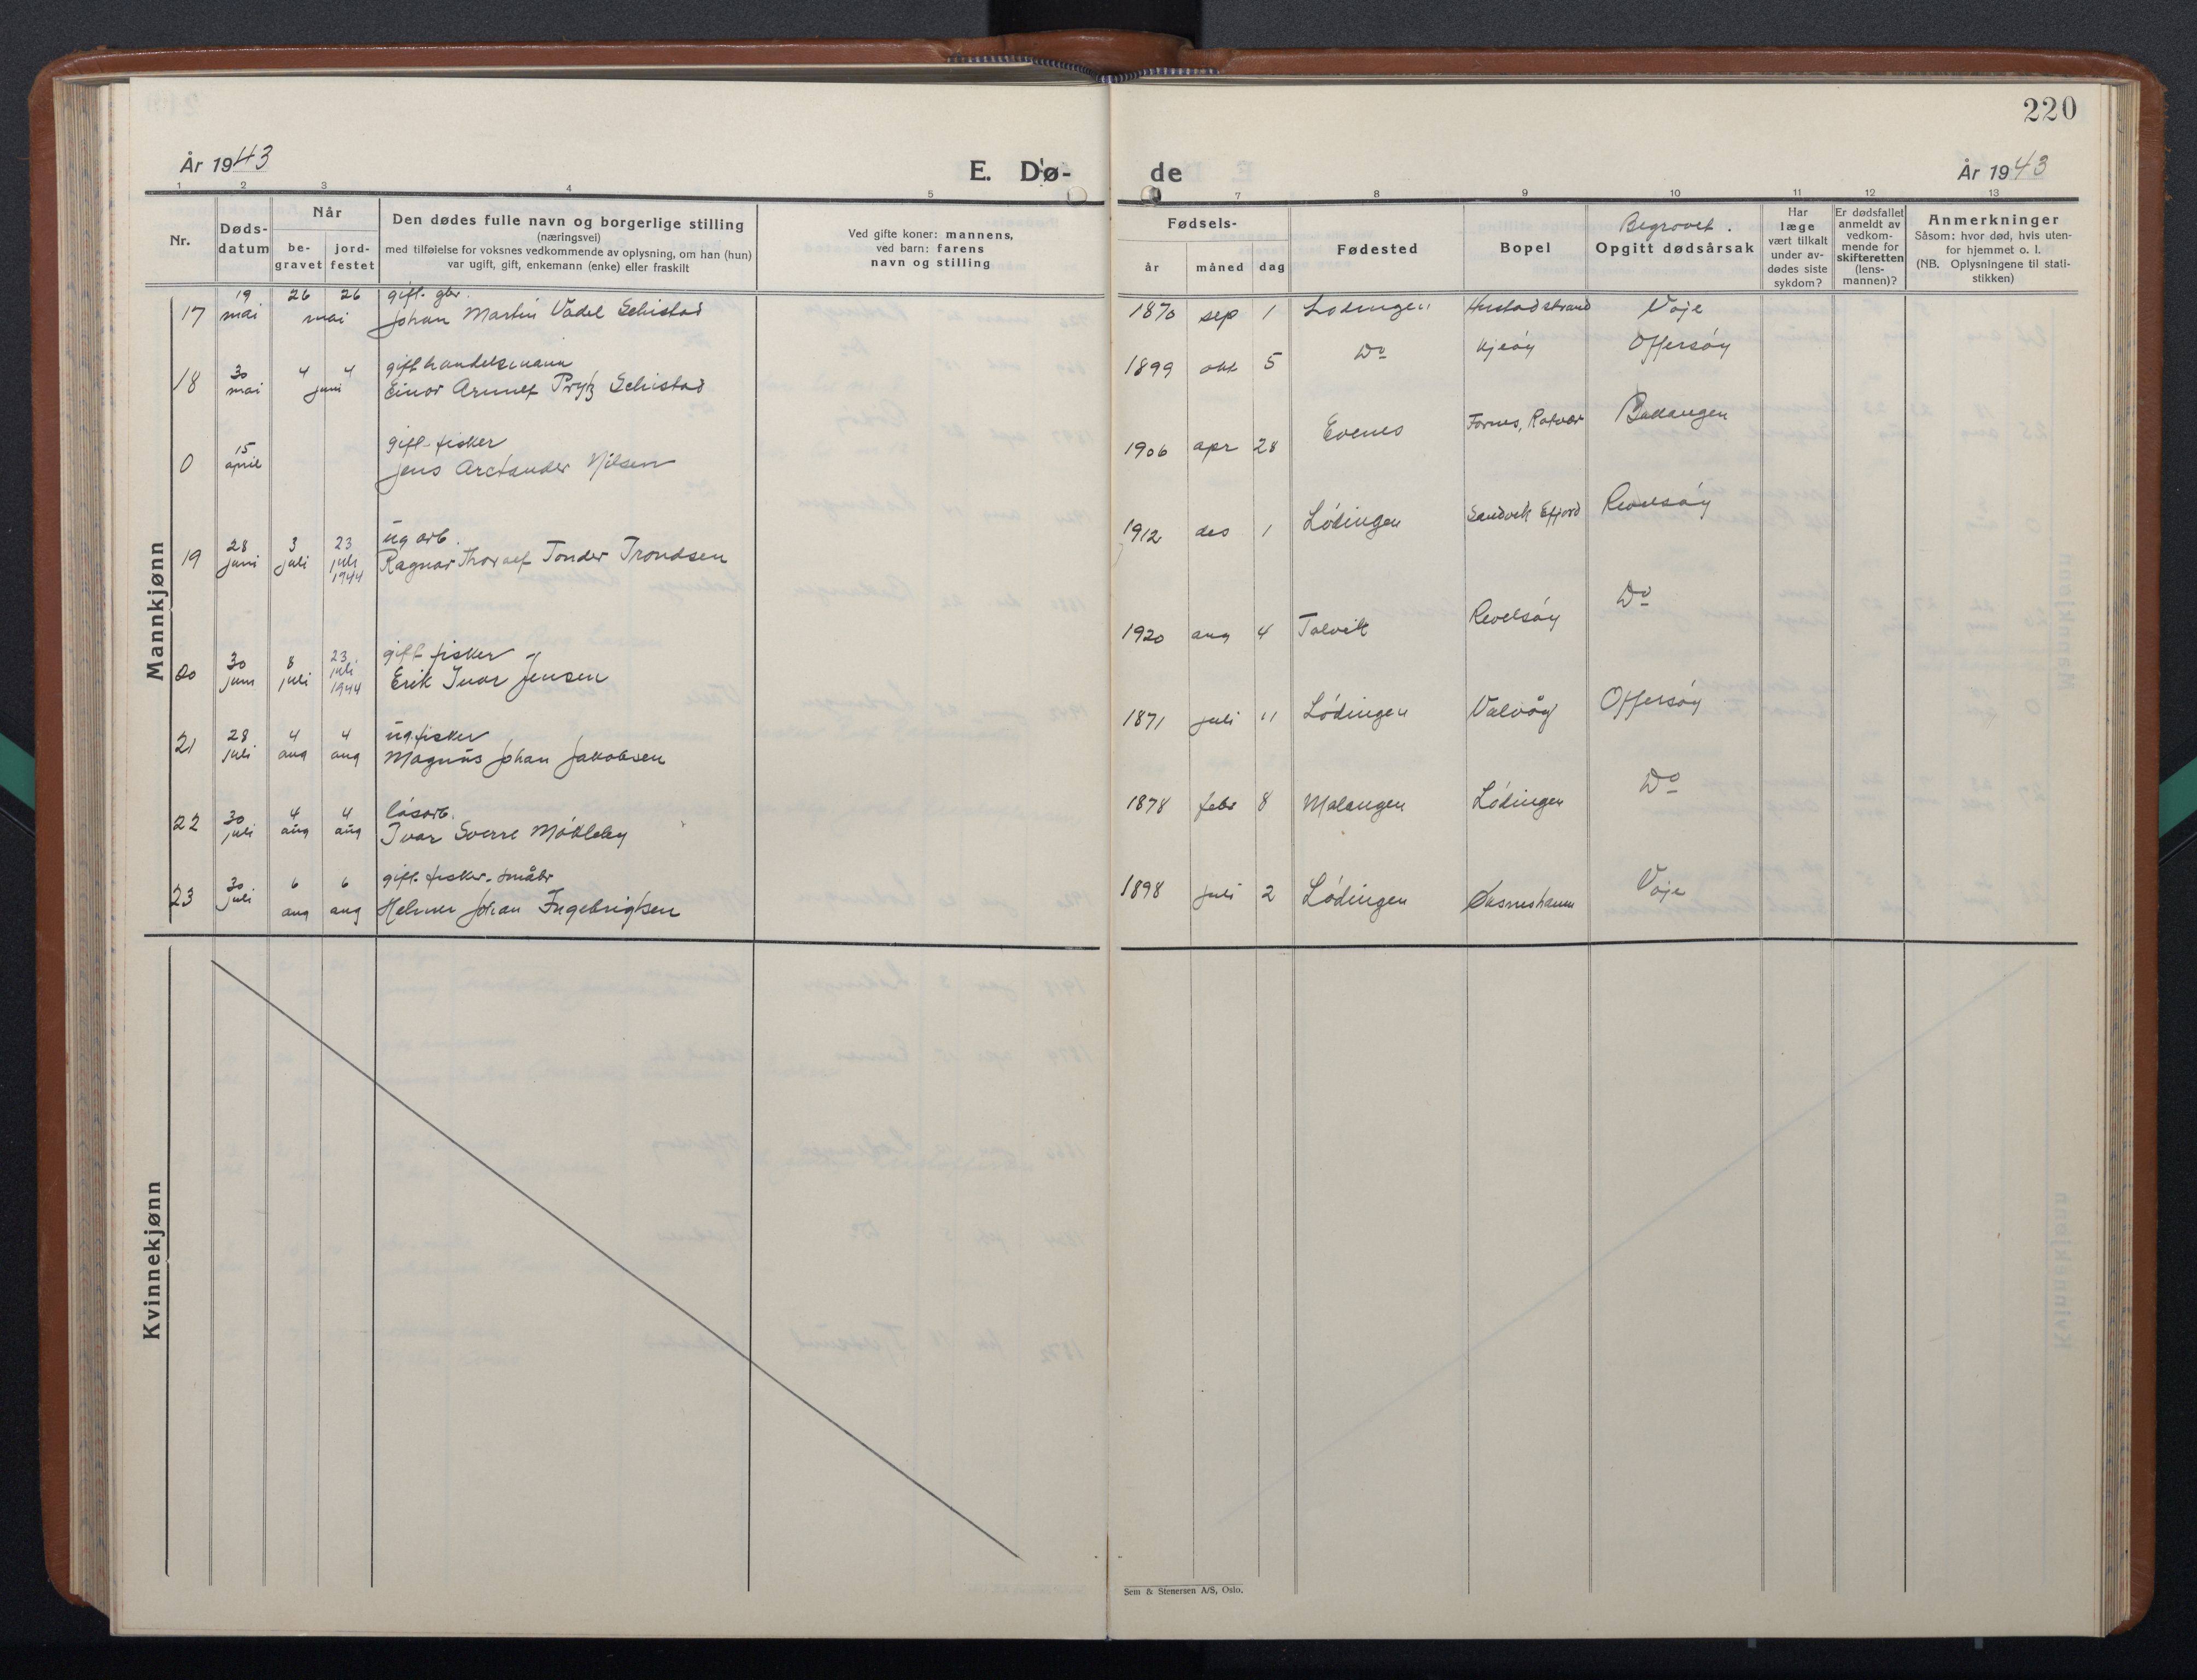 220
År 1943
E. Dø-
de
År 1943
1 2 3 4 5 7 8 9 10 11 12 13
Nr.
Døds-
datum
Når
be-
gravet
jord-
festet
Den dødes fulle navn og borgerlige stilling
(næringsvei)
med tilføielse for voksnes vedkommende av oplysning, om han (hun)
var ugift, gift, enkemann (enke) eller fraskilt
Ved gifte koner: mannens,
ved barn: farens
navn og stilling
Fødsels-
år måned dag
Fødested
Bopel
Begravet.
Opgitt dødsårsak
Har
læge
vært tilkalt
under av-
dødes siste
sykdom?
Er dødsfallet
anmeldt av
vedkom-
mende for
skifteretten
(lens-
mannen)?
Anmerkninger
Såsom: hvor død, hvis uten-
for hjemmet o. l.
(NB. Oplysningene til stati-
stikken)
Mannkjønn
19 26 26 gift. gbr.
17 mai mai Johan Martin Vadel Schistad 1870 sep 1 Lødingen Hustadstrand Våje
30 4 4 gift handelsmann
18 mai juni Einar Arnulf Prytz Schistad 1899 okt 5 Do Kjeøy Offersøy
15 gift fisker
0 april Jens Arctander Nilsen 1906 apr 28 Evenes Fornes, Rotvær Ballangen
28 3 23 ug arb.
19 juni juli juli Ragnar Thoralf Tonder Trondsen 1912 des 1 Lødingen Sandvik Efjord Revelsøy
1944
30 8 23 gift fisker
20 juni juli juli Erik Ivar Jensen 1920 aug 4 Talvik Revelsøy Do
1944
28 4 4 ug. fisker
21 juli aug aug Magnus Johan Jakobsen 1871 juli 11 Lødingen Valvåg Offersøy
30 4 4 løsarb.
22 juli aug aug Ivar Sverre Møkleby 1878 febr 8 Malangen Lødingen Do
30 6 6 gift fisker-småbr
23 juli aug aug Helmer Johan Ingebrigtsen 1898 juli 2 Lødingen Våje
Kvinnekjønn
Sem & Stenersen A/S, Oslo.